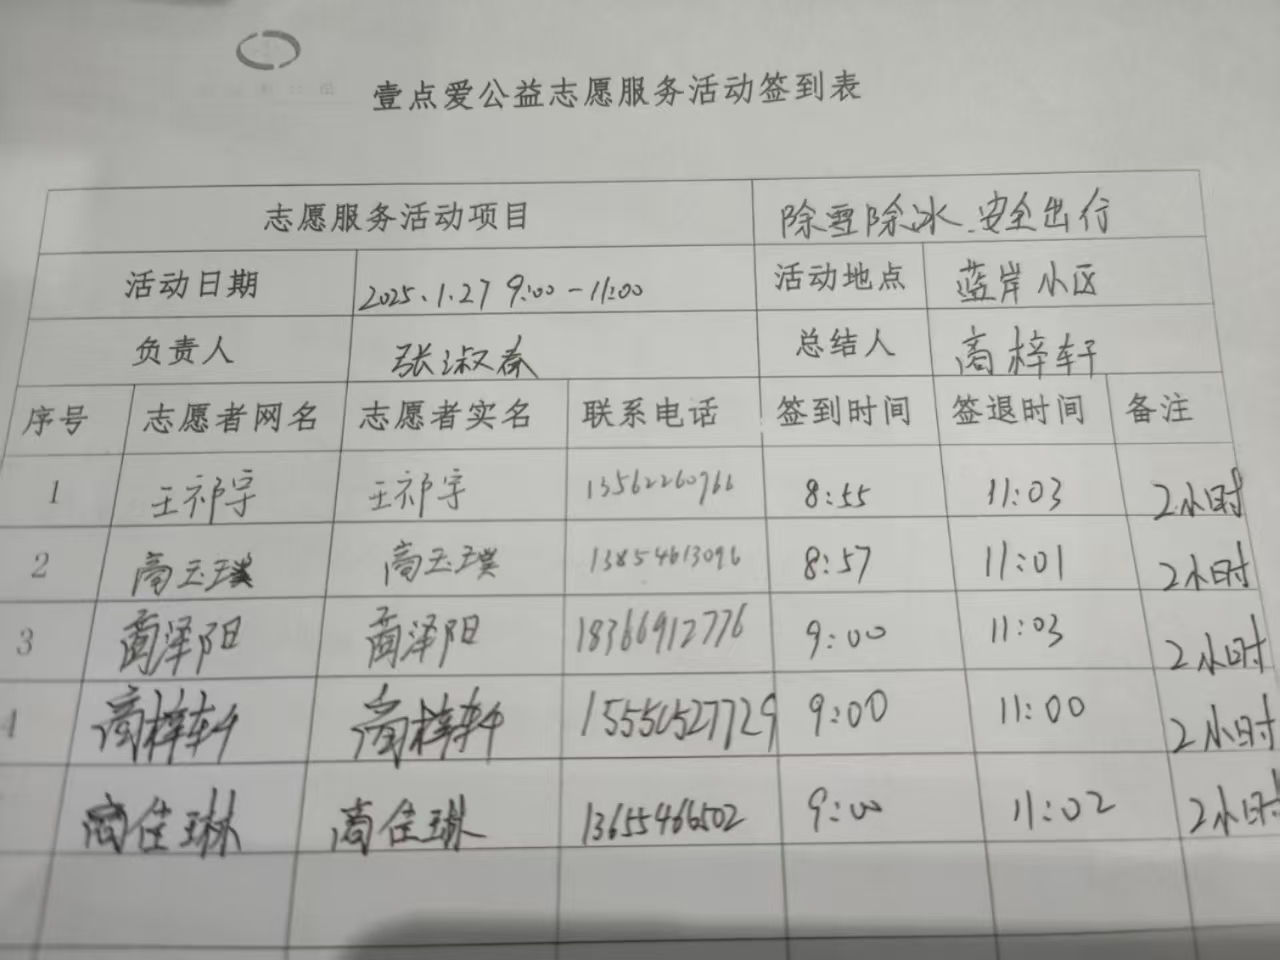 壹点爱公益志愿服务活动签到表
志愿服务活动项目 除雪除冰.安全出行
活动日期 2025.1.27 9:00-11:00 活动地点 蓝岸小区
负责人 张淑春 总结人 高梓轩
序号 志愿者网名 志愿者实名 联系电话 签到时间 签退时间 备注
1 王祁宇 王祁宇 13562260766 8:55 11:03 2小时
2 高玉璞 高玉璞 13854613096 8:57 11:01 2小时
3 商泽阳 商泽阳 18366912776 9:00 11:03 2小时
4 高梓轩 高梓轩 15550527729 9:00 11:00 2小时
商佳琳 商佳琳 13655466502 9:00 11:02 2小时